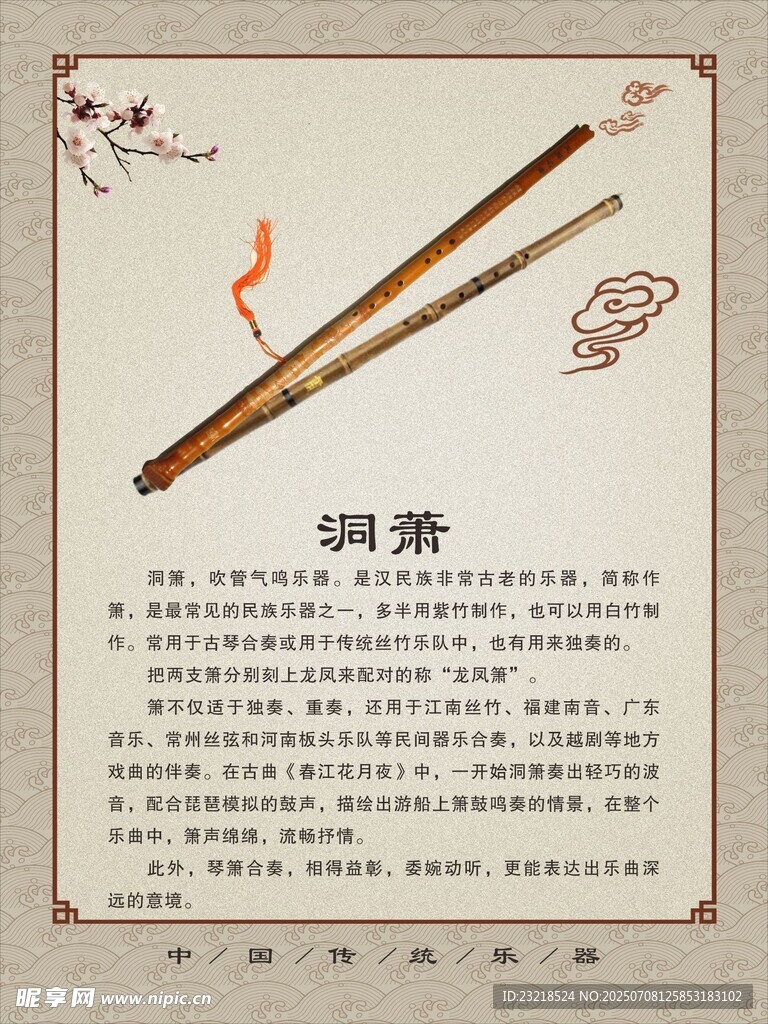 洞萧
洞箫，吹管气鸣乐器。是汉民族非常古老的乐器，简称作
箫，是最常见的民族乐器之一，多半用紫竹制作，也可以用白竹制
作。常用于古琴合奏或用于传统丝竹乐队中，也有用来独奏的。
把两支箫分别刻上龙凤来配对的称“龙凤箫”。
箫不仅适于独奏、重奏，还用于江南丝竹、福建南音、广东
音乐、常州丝弦和河南板头乐队等民间器乐合奏，以及越剧等地方
戏曲的伴奏。在古曲《春江花月夜》中，一开始洞箫奏出轻巧的波
音，配合琵琶模拟的鼓声，描绘出游船上箫鼓鸣奏的情景，在整个
乐曲中，箫声绵绵，流畅抒情。
此外，琴箫合奏，相得益彰，委婉动听，更能表达出乐曲深
远的意境。
中／国／传／统／乐／器
昵享网 www.nipic.cn
ID:23218524 NO:20250708125853183102